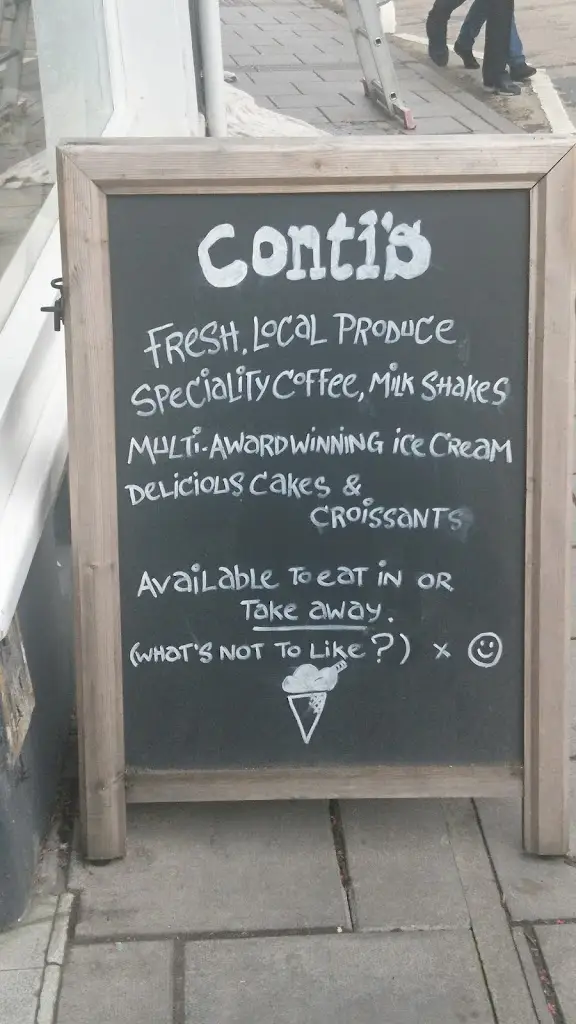 Conti's
FRESH, LOCAL PRODUCE
SPECIALITY COFFEE, MILK SHAKES
MULTI-AWARDWINNING ICE CREAM
DELICIOUS CAKES &
CROISSANTS
AVAILABLE TO EAT IN OR
TAKE AWAY.
(WHAT'S NOT TO LIKE?) x ☺